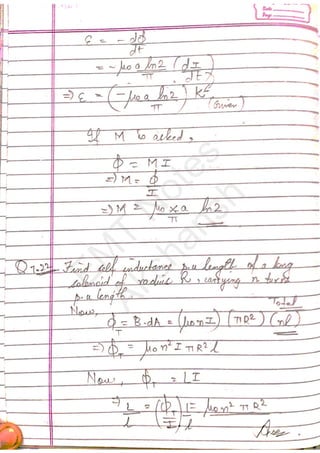 Date
Page
ε = - dφ
dt
= - μ₀ a ln2 (dI)
π dt
=> ε = (- μ₀ a ln2) K
π (Given)
If M is asked,
φ = M I
=> M = φ
I
=> M = μ₀ × a ln2
π
Q 7.22 Find self inductance p.u length of a long
solenoid of radius R, carrying n turns
p.u length.
Now, Total
φ_T = B.dA = (μ₀nI) (πR²) (nl)
=> φ_T = μ₀n² I πR² l
Now, φ_T = LI
=> L = (φ_T) 1 = μ₀n² πR²
l I l
Ans.
EMT Notes